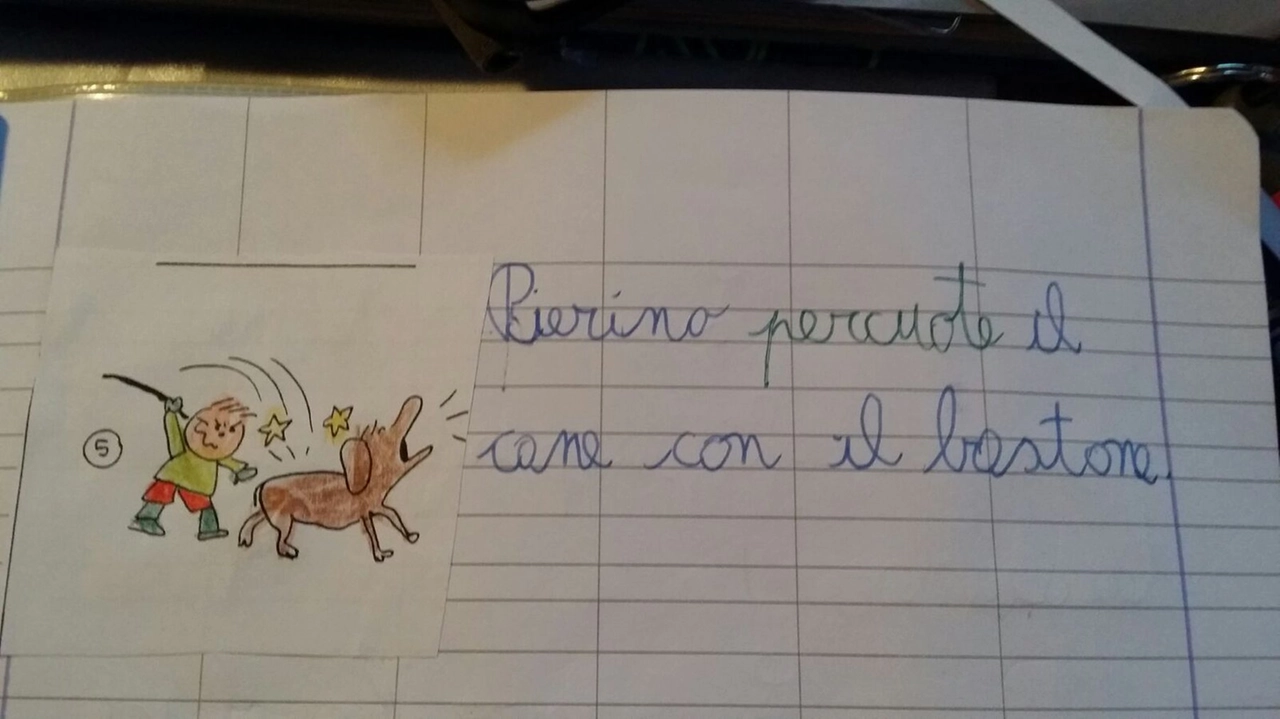 5
Pierino percuote il
cane con il bastone.